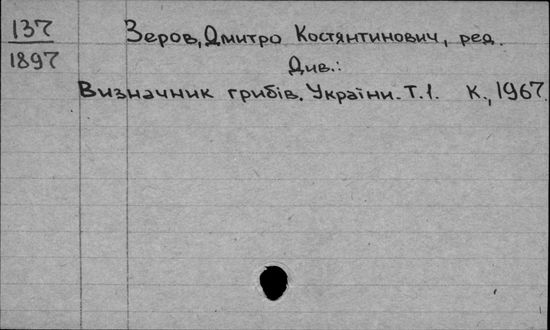 137
1897
Зеров, Дмитро Костянтинович, ред.
Див.:
Визначник грибів. України. Т.1. К., 1967.